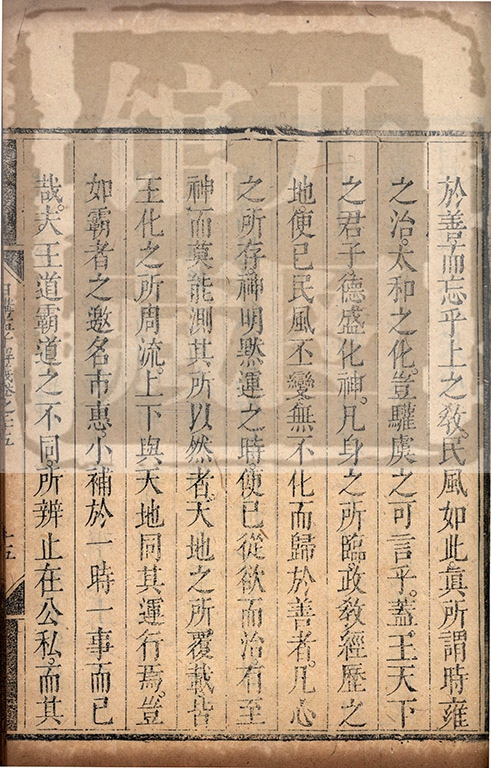 於善而忘乎上之教。民風如此眞所謂時雍
之治。太和之化。豈驩虞之可言乎。蓋王天下
之君子德盛化神。凡身之所臨政教經歷之
地便已民風丕變無不化而歸於善者。凡心
之所存神明默運之時。便已從欲而治有至
神而莫能測其所以然者。天地之所覆載皆
王化之所周流。上下與天地同其運行焉。豈
如霸者之邀名市惠。小補於一時一事而已
哉。夫王道霸道之不同。所辨止在公私。而其
日講四書解義卷之二十五
十五